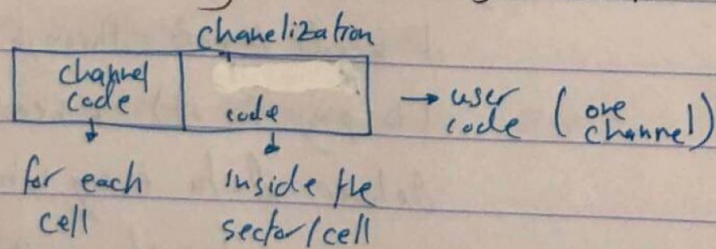 chanelization
channel code
code
→ user code ( one channel )
for each cell
inside the sector/cell